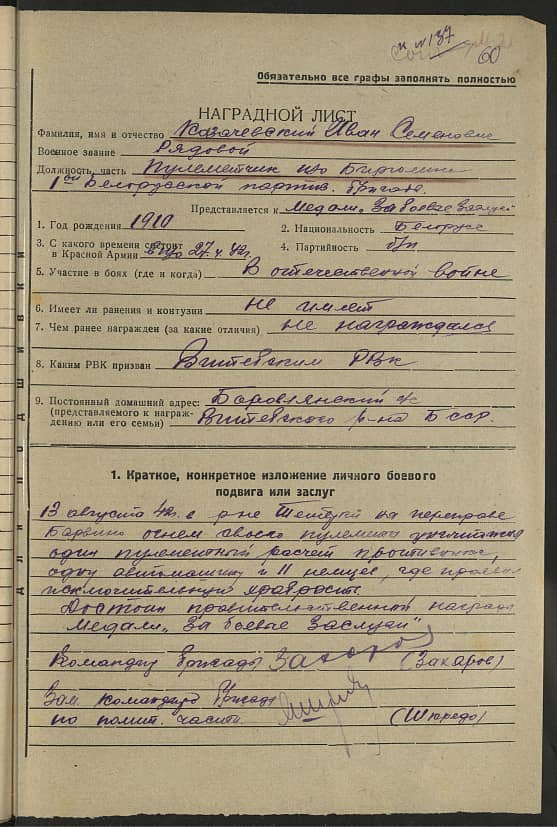 н N 137
60
Обязательно все графы заполнять полностью
НАГРАДНОЙ ЛИСТ
Фамилия, имя и отчество Казачевский Иван Семенович
Военное звание Рядовой
Должность, часть Пулеметчик
1ой Белорусской партиз. бригады.
Представляется к Медали „За боевые заслуги
1. Год рождения 1910 2. Национальность Белорус
3. С какого времени состоит
в Красной Армии 27.4.42г. 4. Партийность б/п
5. Участие в боях (где и когда) В отечественной войне
6. Имеет ли ранения и контузии не имеет
7. Чем ранее награжден (за какие отличия) не награждался
8. Каким РВК призван Витебским РВК
9. Постоянный домашний адрес: Боровлянский с/с
(представляемого к награж-
дению или его семьи) Витебского р-на БССР.
Для подшивки
1. Краткое, конкретное изложение личного боевого
подвига или заслуг
13 августа 42г. в р-не на переправе
Барвино огнем своего пулемета уничтожил
один пулеметный расчет противника,
одну автомашину и 11 немцев, где проявил
исключительную храбрость.
Достоин правительственной награды
Медали „За боевые заслуги"
Командир бригады (Захаров)
Зам. командира бригады
по полит. части (Шюрдо)